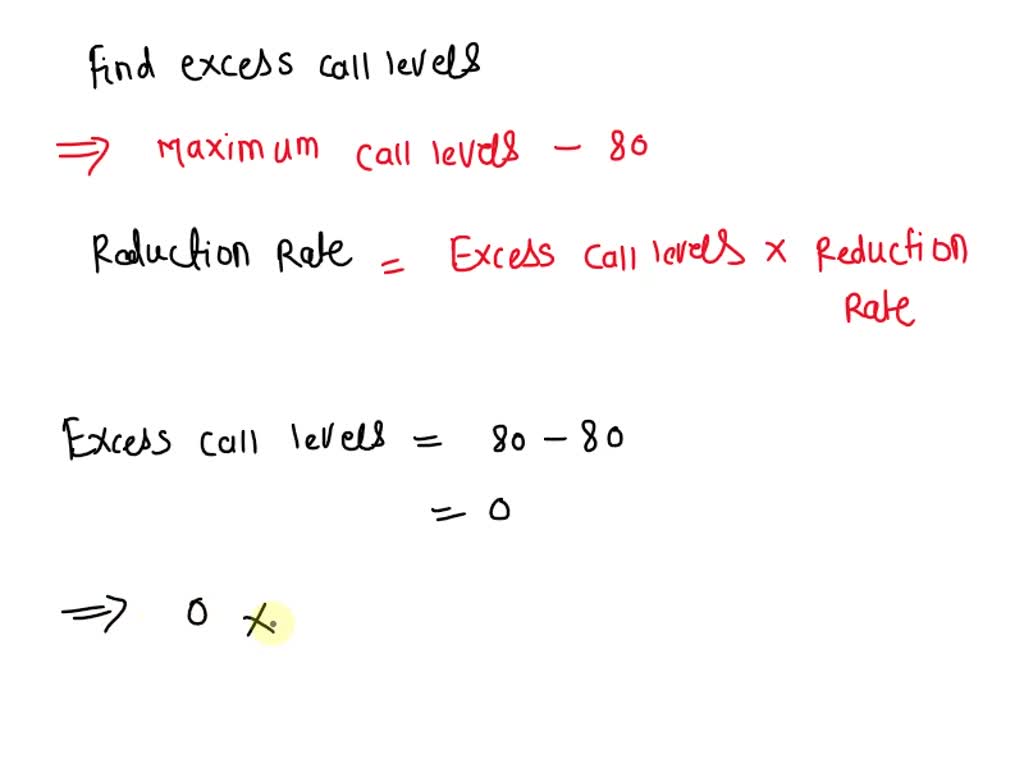 Find excess call levels
⇒ Maximum call levels - 80
Reduction Rate = Excess call levels × Reduction
Rate
Excess call levels = 80 - 80
= 0
⇒ 0 ×